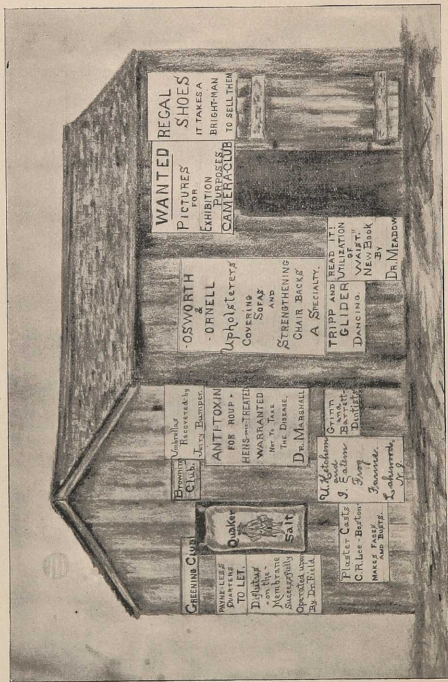 GREENING CLUB
PAYNE-LESS
QUARTERS
TO LET.
on the
Membrane
Successfully
Operated upon
By Dr. Field
Browning
Club.
Quaker
Salt
Plaster Casts
C.R. Lee - Boston
MAKES FACES
AND BUSTS.
Umbrellas
Recovered by
Jerry Bumper.
ANTI-TOXIN
FOR ROUP.
HENS TREATED
WARRANTED
NOT TO TAKE
THE DISEASE.
DR. MARSHALL
U Ketchem
and
I. Eatem
Frog
Farms
Lakewood,
N.J.
Grinn
and
Barrett
Dentists
OSWORTH
&
ORNELL
Upholsterers
COVERING
SOFAS
AND
STRENGTHENING
CHAIR BACKS
A SPECIALTY.
TRIPP AND
GLIDER
DANCING.
READ IT!
UTILIZATION
OF
"WAIST."
NEW BOOK
BY
DR. MEADOW
WANTED
PICTURES
FOR
EXHIBITION
PURPOSES
CAMERA-CLUB
REGAL
SHOES
IT TAKES A
BRIGHT-MAN
TO SELL THEM